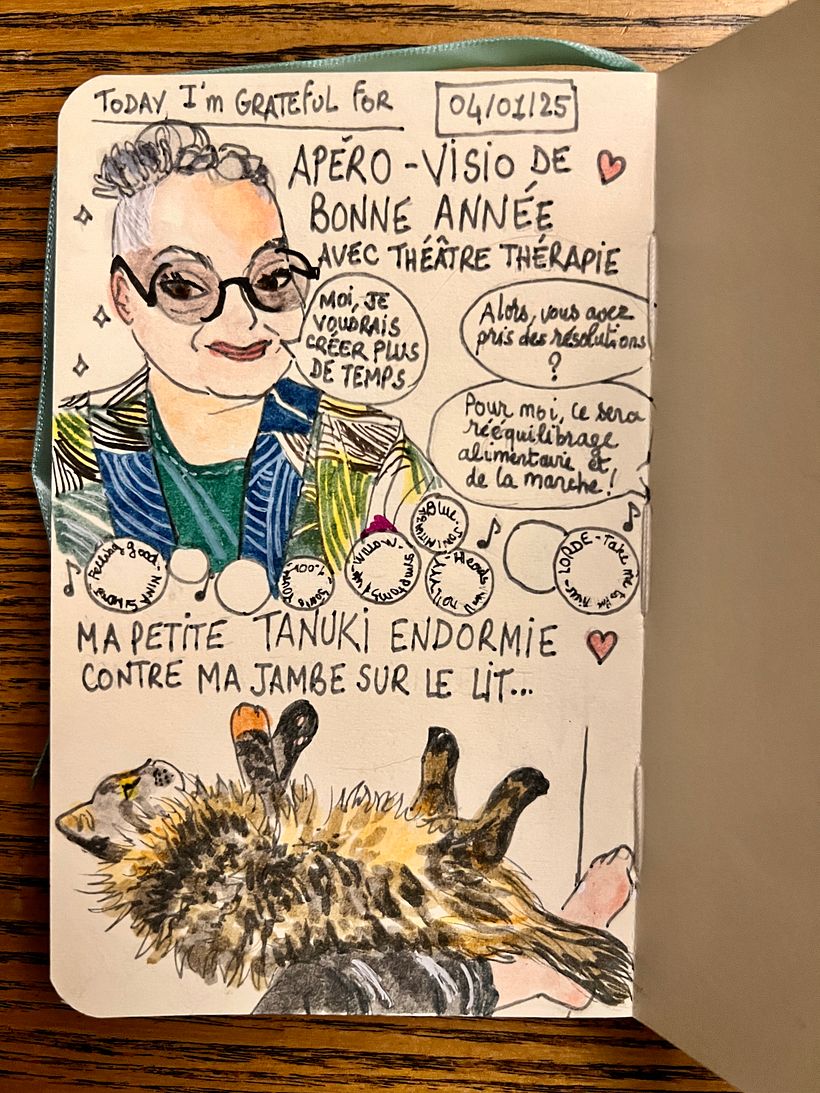 TODAY I'm GRATEFUL FOR
04/01/25
APÉRO-VISIO DE
BONNE ANNÉE
AVEC THÉÂTRE THÉRAPIE
MOI, JE
VOUDRAIS
CRÉER PLUS
DE TEMPS
Alors, vous avez
pris des résolutions
?
Pour moi, ce sera
rééquilibrage
alimentaire et
de la marche!
Feeling good - NINA SIMONE
100%
SONIC YOUTH
WILLOW - symptom of life
Blue
JONI MITCHELL
Heads will roll
YYY
LORDE - Take me to the river
MA PETITE TANUKI ENDORMIE
CONTRE MA JAMBE SUR LE LIT...